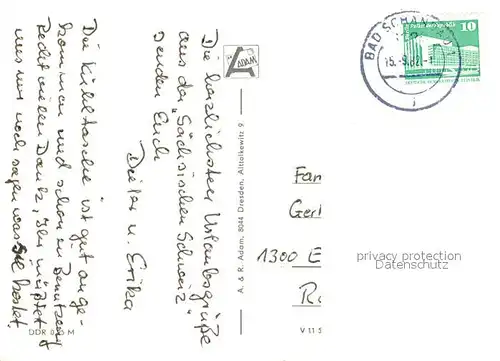 Die herzlichsten Urlaubsgrüße
aus der „Sächsischen Schweiz“
senden Euch
Dieter u. Erika
Die Kühltasche ist gut ange-
kommen und schon in Benutzung
Recht vielen Dank, Ihr müßtet
uns nur noch sagen was sie kostet.
ADAM
A. & R. Adam, 8044 Dresden, Altlolkewitz 9
DDR M
V 11 5
BAD SCHAN
10
Fam
Gerh
1300 E
privacy protection
Datenschutz